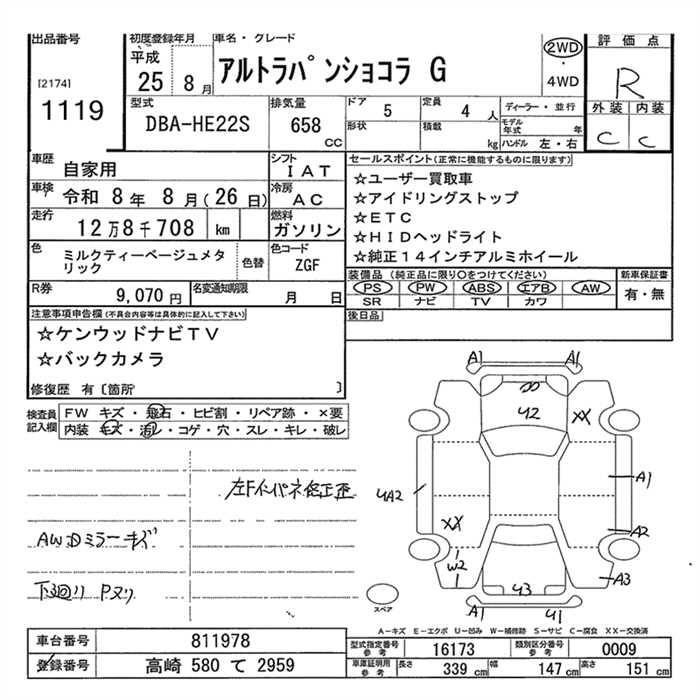 出品番号
[2174]
1119
初度登録年月
平成
25 8月
車名・グレード
アルトラパンショコラ G
2WD
・
4WD
評価点
R
外装 内装
C C
型式
DBA-HE22S
排気量
658
CC
ドア
5
定員
4 人
形状
積載
kg
ディーラー・並行
モデル年式 年
ハンドル 左・右
車歴
自家用
シフト
IAT
車検 令和 8年 8月(26日)
冷房
AC
走行
12万8千708 km
燃料
ガソリン
色
ミルクティーベージュメタリック
色替
色コード
ZGF
R券
9,070円
名変通知期限
月 日
セールスポイント(正常に機能するものに限ります)
☆ユーザー買取車
☆アイドリングストップ
☆ETC
☆HIDヘッドライト
☆純正14インチアルミホイール
装備品 (純正品に限り○をつけてください)
PS PW ABS エアB AW
SR ナビ TV カワ
新車保証書
有・無
後日品
注意事項申告欄(不具合内容等は具体的に記入して下さい)
☆ケンウッドナビTV
☆バックカメラ
修復歴 有〔箇所 〕
検査員記入欄
FW キズ・飛石・ヒビ割・リペア跡・×要
内装 キズ・汚レ・コゲ・穴・スレ・キレ・破レ
左Fインパネ修正歪
AWDミラーキズ
下廻り Pヌリ
A1 A1
U2
XX
A1
UA2
XX
A2
W2
A3
U3
A1 U1
スペア
A－キズ E－エクボ U－凹み W－補修跡 S－サビ C－腐食 XX－交換済
車台番号 811978
登録番号 高崎 580 て 2959
型式指定番号参考 16173
類別区分番号参考 0009
車庫証明用参考 長さ 339 cm 幅 147 cm 高さ 151 cm